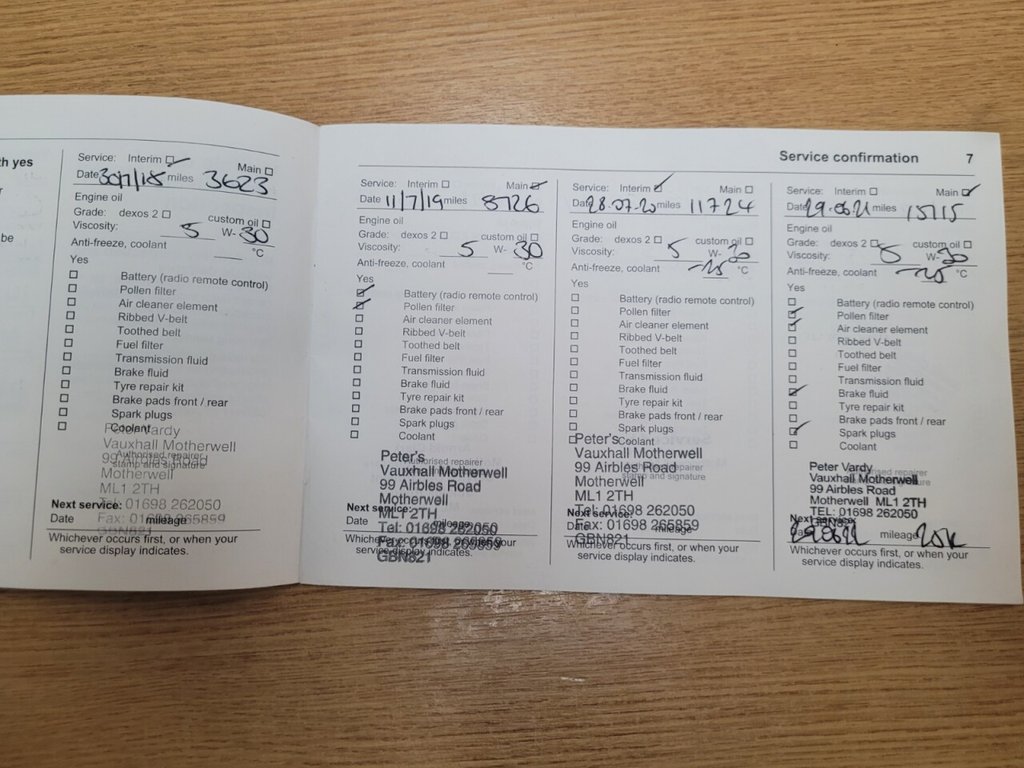 th yes
be
Service: Interim ☑ Main ☐
Date 30/7/18 miles 3623
Engine oil
Grade: dexos 2 ☐ custom oil ☐
Viscosity: 5 W- 30
Anti-freeze, coolant °C
Yes
☐ Battery (radio remote control)
☐ Pollen filter
☐ Air cleaner element
☐ Ribbed V-belt
☐ Toothed belt
☐ Fuel filter
☐ Transmission fluid
☐ Brake fluid
☐ Tyre repair kit
☐ Brake pads front / rear
☐ Spark plugs
☐ Coolant
Peter Vardy
Vauxhall Motherwell
99 Airbles Road
Authorised repairer
stamp and signature
Motherwell
ML1 2TH
Tel: 01698 262050
Next service:
Fax: 01698 265859
Date mileage
GBN821
Whichever occurs first, or when your
service display indicates.
Service confirmation 7
Service: Interim ☐ Main ☑
Date 11/7/19 miles 8726
Engine oil
Grade: dexos 2 ☐ custom oil ☐
Viscosity: 5 W- 30
Anti-freeze, coolant °C
Yes
☑ Battery (radio remote control)
☑ Pollen filter
☐ Air cleaner element
☐ Ribbed V-belt
☐ Toothed belt
☐ Fuel filter
☐ Transmission fluid
☐ Brake fluid
☐ Tyre repair kit
☐ Brake pads front / rear
☐ Spark plugs
☐ Coolant
Peter's
Authorised repairer
Vauxhall Motherwell
stamp and signature
99 Airbles Road
Motherwell
Next service:
ML1 2TH
Date mileage
Tel: 01698 262050
Whichever occurs first, or when your
Fax: 01698 265859
service display indicates.
GBN821
Service: Interim ☑ Main ☐
Date 28.07.20 miles 11724
Engine oil
Grade: dexos 2 ☐ custom oil ☐
Viscosity: 5 W- 30
Anti-freeze, coolant -25 °C
Yes
☐ Battery (radio remote control)
☐ Pollen filter
☐ Air cleaner element
☐ Ribbed V-belt
☐ Toothed belt
☐ Fuel filter
☐ Transmission fluid
☐ Brake fluid
☐ Tyre repair kit
☐ Brake pads front / rear
☐ Spark plugs
☐ Coolant
Peter's
Vauxhall Motherwell
99 Airbles Road
Authorised repairer
stamp and signature
Motherwell
ML1 2TH
Tel: 01698 262050
Next service:
Fax: 01698 265859
Date mileage
GBN821
Whichever occurs first, or when your
service display indicates.
Service: Interim ☐ Main ☑
Date 29.06.21 miles 15115
Engine oil
Grade: dexos 2 ☐ custom oil ☐
Viscosity: 5 W- 30
Anti-freeze, coolant -25 °C
Yes
☐ Battery (radio remote control)
☑ Pollen filter
☑ Air cleaner element
☐ Ribbed V-belt
☐ Toothed belt
☐ Fuel filter
☐ Transmission fluid
☑ Brake fluid
☐ Tyre repair kit
☐ Brake pads front / rear
☑ Spark plugs
☐ Coolant
Peter Vardy
Authorised repairer
Vauxhall Motherwell
stamp and signature
99 Airbles Road
Motherwell ML1 2TH
TEL: 01698 262050
Next service:
Date 29.06.22 mileage 25k
Whichever occurs first, or when your
service display indicates.